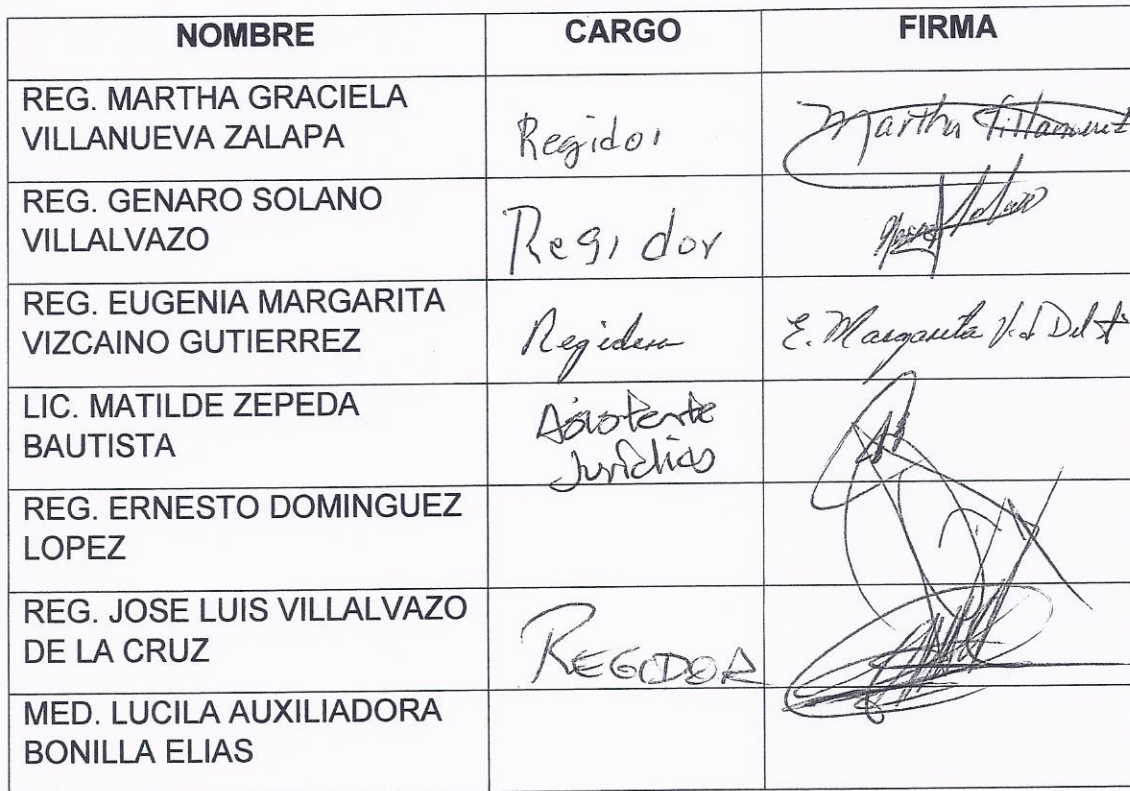 NOMBRE CARGO FIRMA
REG. MARTHA GRACIELA
VILLANUEVA ZALAPA
Regidor
Martha Villanueva
REG. GENARO SOLANO
VILLALVAZO
Regidor
REG. EUGENIA MARGARITA
VIZCAINO GUTIERREZ
Regidora
E. Margarita
LIC. MATILDE ZEPEDA
BAUTISTA
Asistente
Jurídico
REG. ERNESTO DOMINGUEZ
LOPEZ
REG. JOSE LUIS VILLALVAZO
DE LA CRUZ
REGIDOR
MED. LUCILA AUXILIADORA
BONILLA ELIAS